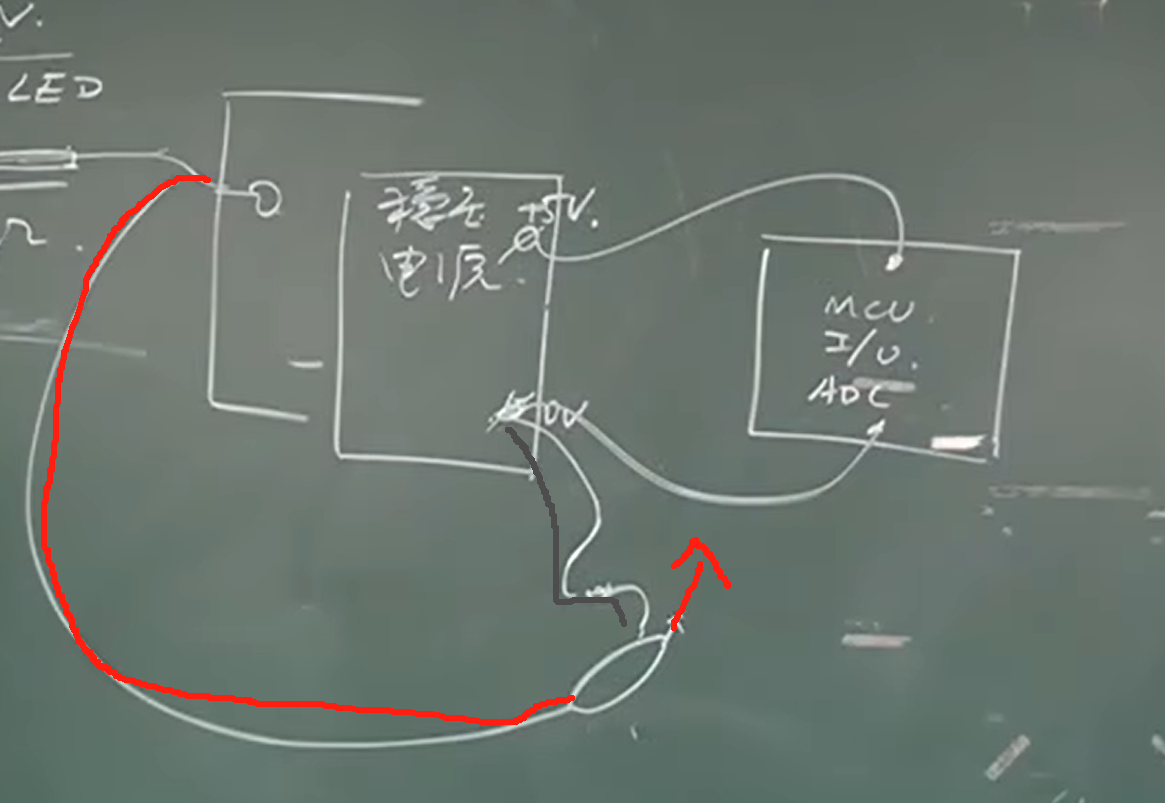 V.
LED
Ω.
稳压
电源.
+5V.
0V
MCU.
I/O.
ADC